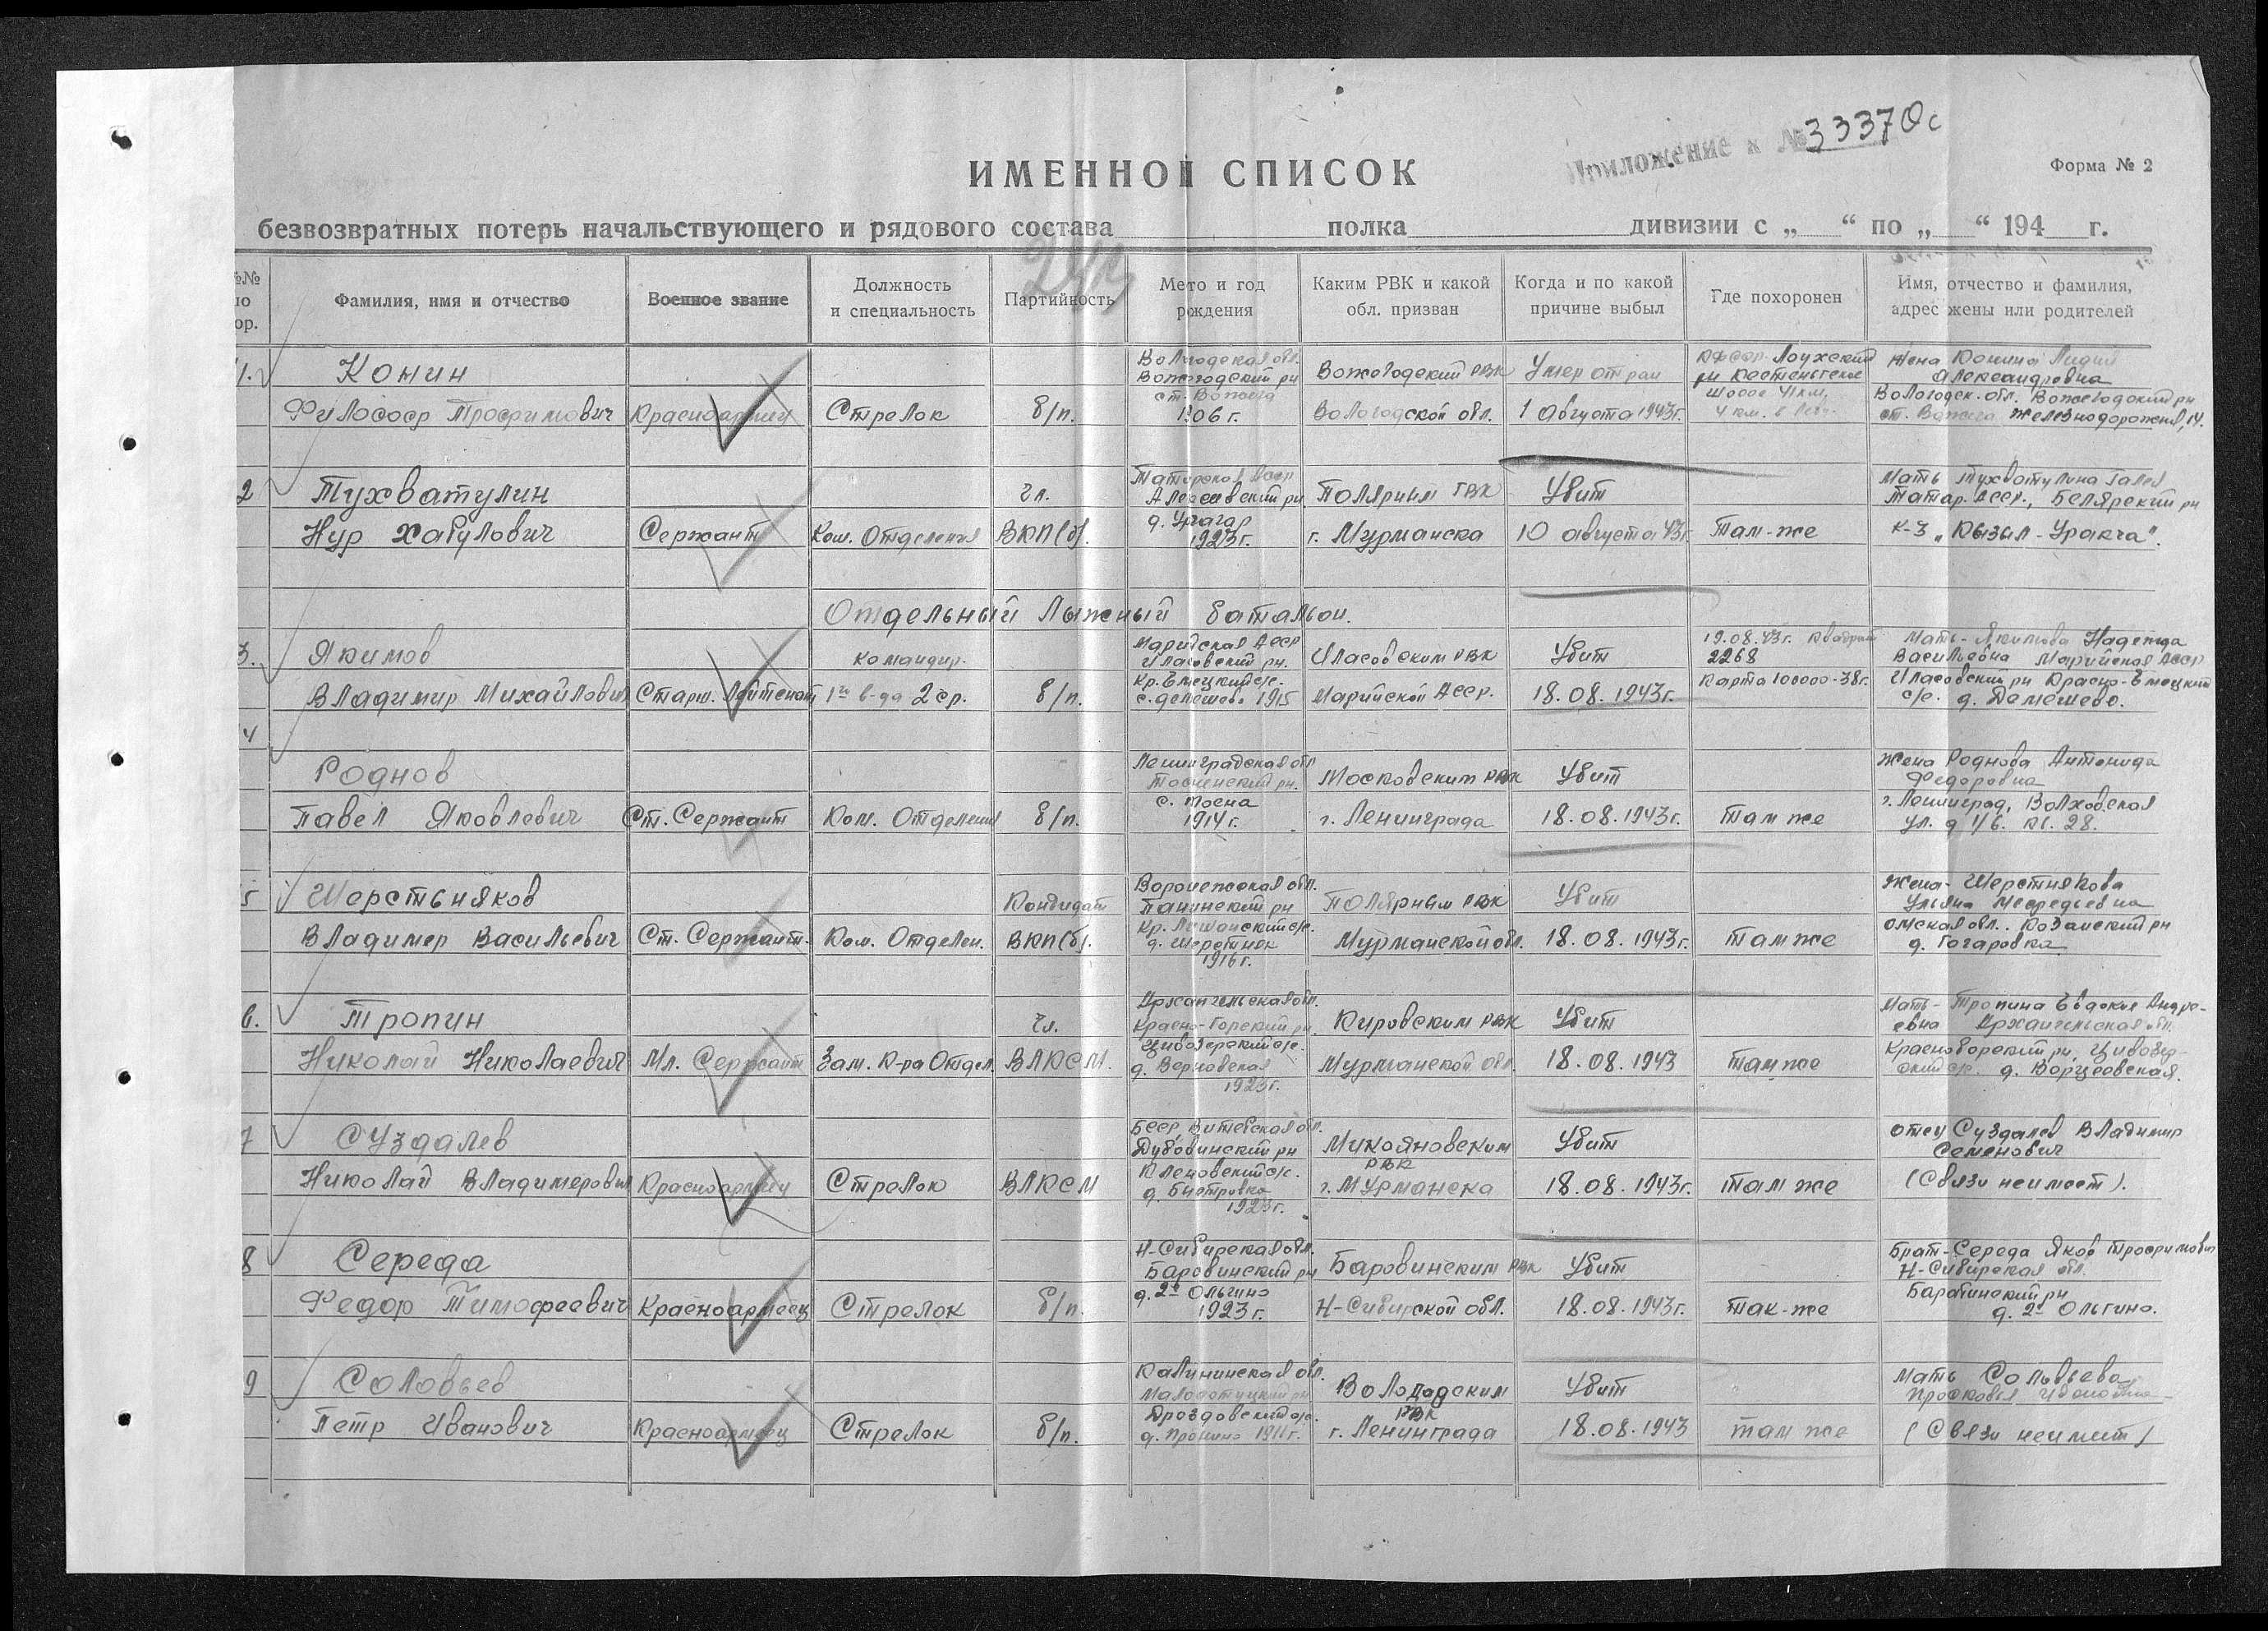 Приложение к № 33370с
Форма № 2
ИМЕННОЙ СПИСОК
безвозвратных потерь начальствующего и рядового состава полка дивизии с „ “ по „ “ 194 г.
№№ по пор.
Фамилия, имя и отчество
Военное звание
Должность и специальность
Партийность
Место и год рождения
Каким РВК и какой обл. призван
Когда и по какой причине выбыл
Где похоронен
Имя, отчество и фамилия, адрес жены или родителей
1.
Конин
Философ Трофимович
Красноармеец
Стрелок
б/п.
Вологодская обл.
Вожегодский рн
ст. Вожега
1906 г.
Вожегодский РВК
Вологодской обл.
Умер от ран
1 Августа 1943г.
КФССР Лоухский
рн Кестеньгское
шоссе 41 км,
Жена Конина Лидия
Александровна
Вологодск. обл. Вожегодский рн
ст. Вожега Железнодорожная, 14.
2
Тухватулин
Нур Хабулович
Сержант
Ком. Отделения
чл.
ВКП(б).
Татарская АССР
рн
д. Урагар
1923г.
Полярным РВК
г. Мурманска
Убит
10 августа 43г.
Там-же
Мать Тухватулина Галея
Татар. АССР., Белярский рн
к-з „Кызыл-Уракча“.
Отдельный Лыжный батальон.
3.
Якимов
Владимир Михайлович
Старш. Лейтенант
командир.
1го в-да 2 ср.
б/п.
Марийская АССР
Иласовский рн.
Кр. Емецкий с/с.
с. Демешево 1915
Иласовским РВК
Марийской АССР.
Убит
18.08.1943г.
19.08.43г. квадрат
2268
Карта 100000-38г.
Мать - Якимова Надежда
Васильевна Марийская АССР
Иласовский рн Красно-Емецкий
с/с. д. Демешево.
4
Роднов
Павел Яковлевич
Ст. Сержант
Ком. Отделения
б/п.
Ленинградская обл
Тосненский рн.
с. Тосна
1914 г.
Московским РВК
г. Ленинграда
Убит
18.08.1943г.
Там же
Жена Роднова Антонида
Федоровна
г. Ленинград, Волховская
ул. д 1/6. кв. 28.
5
Шерстьняков
Владимер Васильевич
Ст. Сержант.
Ком. Отделен.
Кондидат
ВКП(б).
Воронежская обл.
Панинский рн
д. Шерстнек
1916 г.
Полярным РВК
Мурманской обл.
Убит
18.08.1943г.
Там же
Жена - Шерстнякова
Ульяна Мефредьевна
Омская обл.. Казанский рн
д. Гагаровка
6.
Тропин
Николай Николаевич
Мл. Сержант
Зам. К-ра Отдел.
Чл.
ВЛКСМ.
Архангельская обл.
Красно-Горский рн.
Цивозерский с/с.
д. Верховская
1923г.
Кировским РВК
Мурманской обл
Убит
18.08.1943
Там же
Мать - Тропина Евдокия Андре-
евна Архангельская обл.
Красноборский рн, Цивозер-
ский с/с. д.
7
Суздалев
Николай Владимерович
Красноармеец
Стрелок
ВЛКСМ
БССР Витебская обл.
Дубовинский рн
Кленовский с/с.
д. Быстровка
1923г.
Микояновским
РВК
г. Мурманска
Убит
18.08.1943г.
Там же
отец Суздалев Владимир
Семенович
(Связи неимеет).
8
Середа
Федор Тимофеевич
Красноармеец
Стрелок
б/п.
Н-Сибирская обл.
Баровинский рн
д. 2е Ольгино
1923 г.
Баровинским РВК
Н-Сибирской обл.
Убит
18.08.1943г.
Так-же
Брат - Середа Яков Трофимович
Н-Сибирская обл.
Барабинский рн
д. 2е Ольгино.
9
Соловьев
Петр Иванович
Красноармеец
Стрелок
б/п.
Калининская обл.
Дроздовский с/с.
д. Пронино 1911г.
Володарским
РВК
г. Ленинграда
Убит
18.08.1943
Там же
Мать Сольвьева
Просковья
(Связи неимеет)